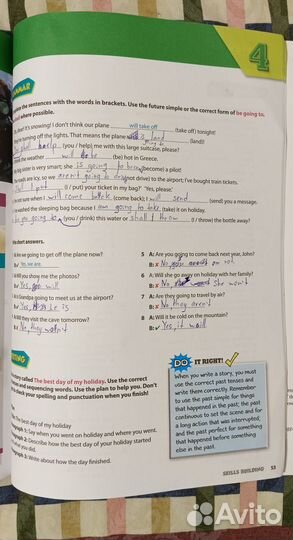 4
view the sentences with the words in brackets. Use the future simple or the correct form of be going to.
where possible.
it's snowing! I don't think our plane will take off (take off) tonight!
turning off the lights. That means the plane is going to land (land)!
help (you / help) me with this large suitcase, please?
the weather will be (be) hot in Greece.
big sister is very smart; she is going to (become) a pilot!
are icy, so we aren't going to drive (not drive) to the airport; I've bought train tickets.
I put (I / put) your ticket in my bag? 'Yes, please.'
not sure when I will come back (come back); I will send (send) you a message.
washed the sleeping bag because I am going to take (take) it on holiday.
you going to (you / drink) this water or shall I throw (I / throw) the bottle away?
short answers.
we going to get off the plane now?
Yes, we are.
you show me the photos?
Yes, will
Grandpa going to meet us at the airport?
Yes, he is
they visit the cave tomorrow?
No they won't
5 A: Are you going to come back next year, John?
B: ✗ No, am not
6 A: Will she go away on holiday with her family?
B: ✗ No, she won't
7 A: Are they going to travel by air?
B: ✗ No they aren't
8 A: Will it be cold on the mountain?
B: ✓ Yes, it will
story called The best day of my holiday. Use the correct
and sequencing words. Use the plan to help you. Don't
check your spelling and punctuation when you finish!
The best day of my holiday
1: Say when you went on holiday and where you went.
2: Describe how the best day of your holiday started
what you did.
3: Write about how the day finished.
DO IT RIGHT!
When you write a story, you must
use the correct past tenses and
write them correctly. Remember
to use the past simple for things
that happened in the past; the past
continuous to set the scene and for
a long action that was interrupted;
and the past perfect for something
that happened before something
else in the past.
SKILLS BUILDING 53
Avito